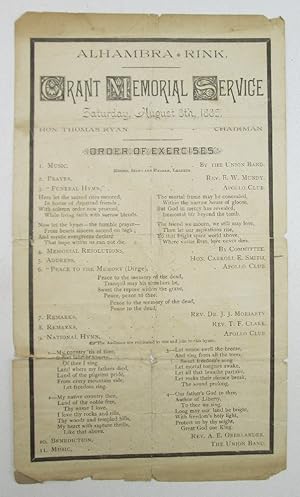 ALHAMBRA RINK,
GRANT MEMORIAL SERVICE
Saturday, August 8th, 1885.
HON. THOMAS RYAN CHAIRMAN
ORDER OF EXERCISES
1. MUSIC, BY THE UNION BAND.
2. PRAYER, REV. R. W. MUNDY.
3. "FUNERAL HYMN," APOLLO CLUB
Here let the sacred rites
In honor of departed friends;
With solemn order now proceed,
While living faith with sorrow blends.
Now let the hymn—the humble prayer—
From hearts sincere ascend on high;
And mystic evergreens declare
That hope within us can not die.
The mortal frame may be concealed,
Within the narrow house of gloom;
But God in mercy has revealed,
Immortal life beyond the tomb.
The friend we mourn, we still may love,
Then let our aspirations rise,
To that bright world above,
Where love never dies.
4. MEMORIAL RESOLUTIONS, BY COMMITTEE.
5. ADDRESS, HON. CARROLL E. SMITH
6. "PEACE TO THE MEMORY (Dirge), APOLLO CLUB
Peace to the memory of the dead,
Tranquil may his slumbers be,
Sweet the repose within the grave,
Peace, peace to thee.
Peace to the memory of the dead,
Peace to the memory of the dead,
Peace to the dead.
7. REMARKS, REV. DR. J. J. MORIARTY
8. REMARKS, REV. T. F. CLARK,
9. NATIONAL HYMN, APOLLO CLUB
The Audience are requested to rise and join in this hymn.
1.—My country 'tis of thee,
Sweet land of liberty,
Of thee I sing
Land where my fathers died,
Land of the pilgrims pride,
From every mountain side,
Let freedom ring.
2.—My native country thee,
Land of the noble free,
Thy name I love.
I love thy rocks and rills,
Thy woods and templed hills,
My heart with rapture thrills,
Like that above.
3.—Let music swell the breeze,
And ring from all the trees,
Sweet freedom's song
Let mortal tongues awake,
Let all that breathe partake,
Let rocks their silence break,
The sound prolong.
4.—Our father's God to thee,
Author of Liberty,
To thee we sing.
Long may our land be bright,
With freedom's holy light,
Protect us by thy might,
Great God our King.
10. BENEDICTION, REV. A. E. OBERLANDER
11. MUSIC, THE UNION BAND.